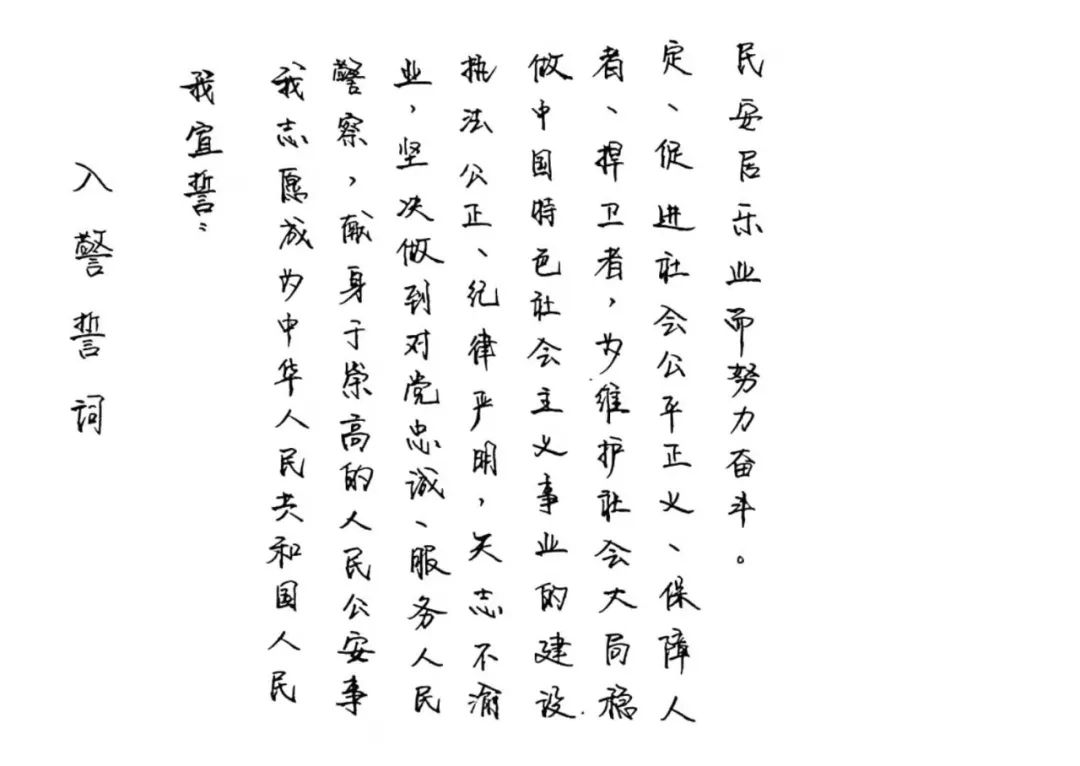 入警誓词
我宣誓:
我志愿成为中华人民共和国人民
警察,献身于崇高的人民公安事
业,坚决做到对党忠诚、服务人民
执法公正、纪律严明,矢志不渝
做中国特色社会主义事业的建设
者、捍卫者,为维护社会大局稳
定、促进社会公平正义、保障人
民安居乐业而努力奋斗。